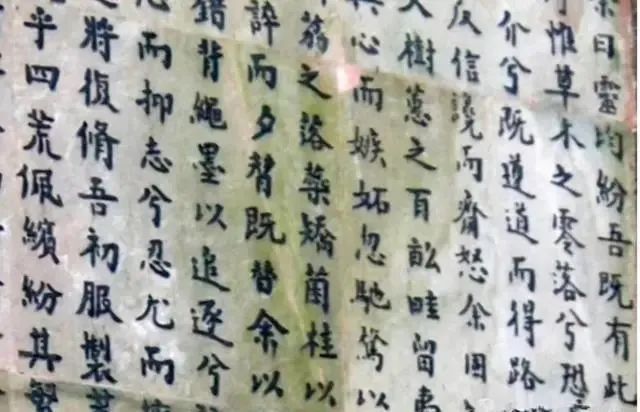 曰靈均紛吾既有此
惟草木之零落兮恐
介兮既遵道而得路
反信讒而齋怒余固
樹蕙之百畝畦留夷
興心而嫉妬忽馳騖以
荔之落蘂矯菌桂以
誶而夕替既替余以
錯背繩墨以追逐兮
心而抑志兮忍尤而
將復脩吾初服製
乎四荒佩繽紛其繁